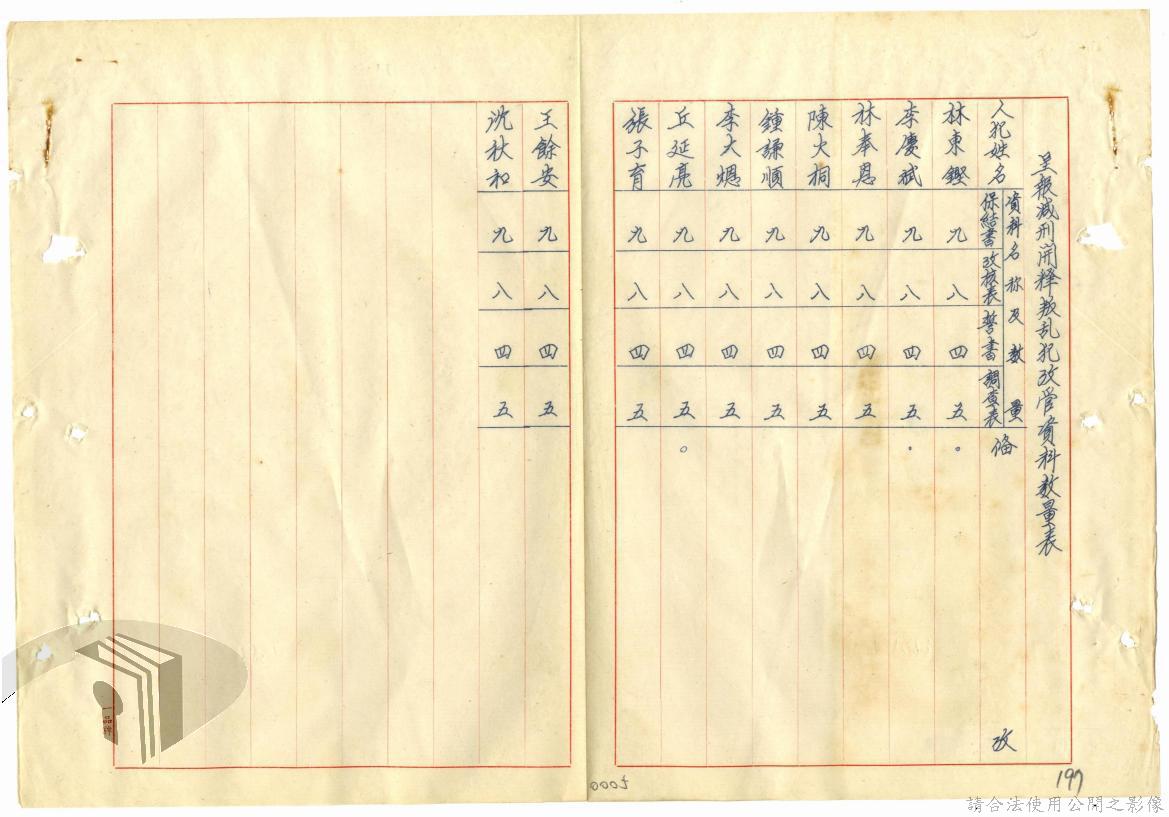 呈報減刑開釋叛乱犯攷管資料数量表
人犯姓名 資料名称及数量 保結書 攷核表 誓書 調查表 俻攷
林東鏗 九 八 四 五
李慶斌 九 八 四 五
林奉恩 九 八 四 五
陳火桐 九 八 四 五
鍾謙順 九 八 四 五
李大㷧 九 八 四 五
丘延亮 九 八 四 五
張子育 九 八 四 五
王餘安 九 八 四 五
沈秋和 九 八 四 五
一品牌
197
請合法使用公開之影像